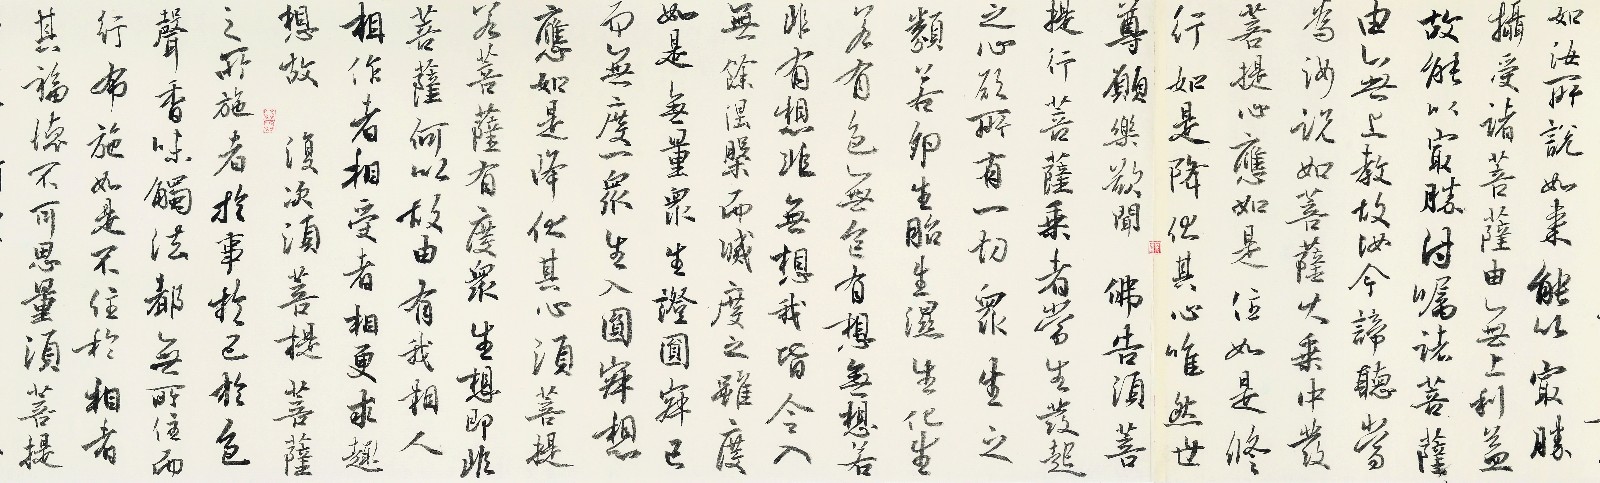 如汝所說如來能以最勝
攝受諸菩薩由無上利益
故能以最勝付囑諸菩薩
由無上教故汝今諦聽當
為汝說如菩薩大乘中發
菩提心應如是住如是修
行如是降伏其心唯然世
尊願樂欲聞 佛告須菩
提行菩薩乘者當生發起
之心所有一切眾生之
類若卵生胎生濕生化生
若有色無色有想無想若
非有想非無想我皆令入
無餘涅槃而滅度之雖度
如是無量眾生證圓寂已
而無度一眾生入圓寂想
應如是降伏其心須菩提
若菩薩有度眾生想即非
菩薩何以故由有我相人
相作者相受者相更求趣
想故 復次須菩提菩薩
之所施者於事於己於色
聲香味觸法都無所住而
行布施如是不住於相者
其福德不可思量須菩提